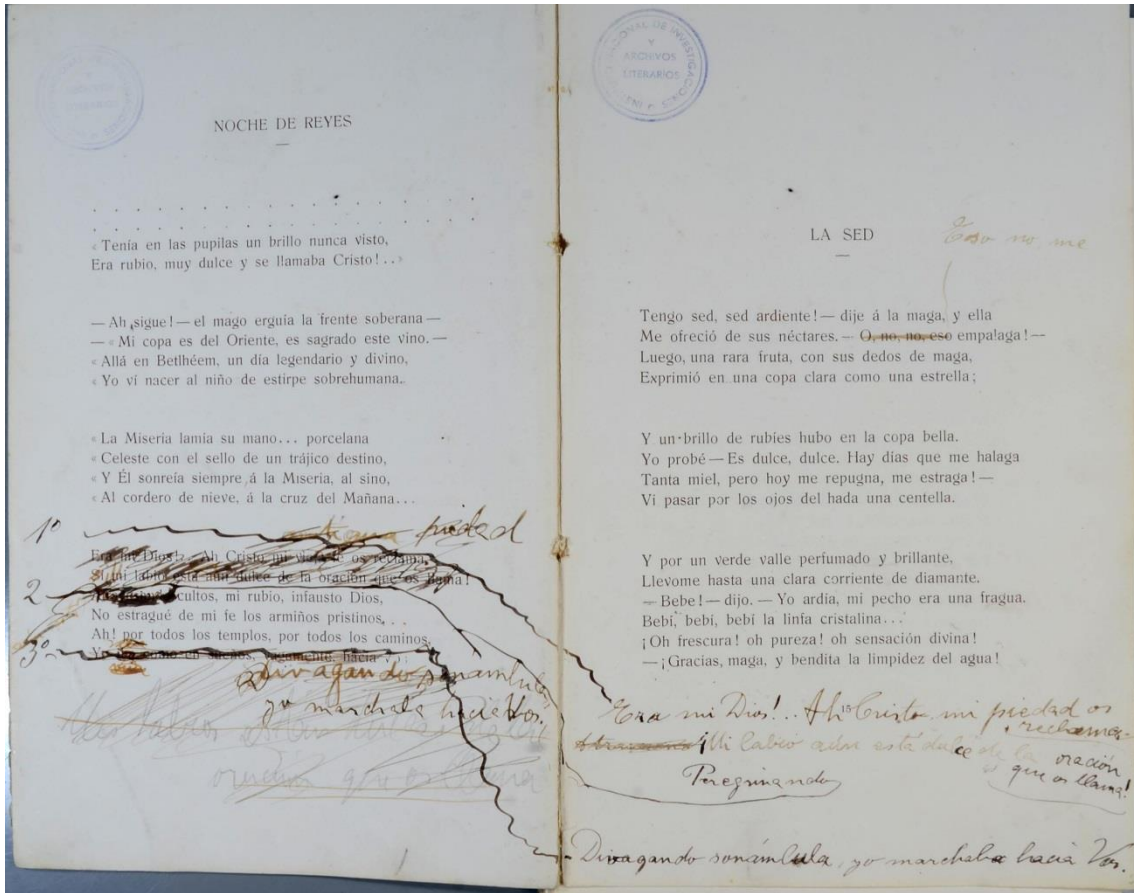 NOCHE DE REYES
« Tenía en las pupilas un brillo nunca visto,
Era rubio, muy dulce y se llamaba Cristo!..»
— Ah ¡sigue! — el mago erguía la frente soberana —
— « Mi copa es del Oriente, es sagrado este vino. —
« Allá en Betlhéem, un día legendario y divino,
« Yo ví nacer al niño de estirpe sobrehumana.
« La Miseria lamía su mano... porcelana
« Celeste con el sello de un trájico destino,
« Y Él sonreía siempre á la Miseria, al sino,
« Al cordero de nieve, á la cruz del Mañana...
1º
piedad
Era mi Dios!.. Ah Cristo, mi os reclama
Si mi labio está aún dulce de la oración que os llama!
2
cultos, mi rubio, infausto Dios,
No estragué de mi fe los armiños pristinos,..
Ah! por todos los templos, por todos los caminos,
3º
vagamente, hacia
Divagando sonámbula,
yo marchaba hacia Vos.
Mi labio
oración que os llama
LA SED
Eso no, me
Tengo sed, sed ardiente! — dije á la maga, y ella
Me ofreció de sus néctares. — O, no, no, eso empalaga! —
Luego, una rara fruta, con sus dedos de maga,
Exprimió en una copa clara como una estrella;
Y un brillo de rubíes hubo en la copa bella.
Yo probé — Es dulce, dulce. Hay días que me halaga
Tanta miel, pero hoy me repugna, me estraga! —
Ví pasar por los ojos del hada una centella.
Y por un verde valle perfumado y brillante,
Llevome hasta una clara corriente de diamante.
— Bebe! — dijo. — Yo ardía, mi pecho era una fragua.
Bebí, bebí, bebí la linfa cristalina...
¡Oh frescura! oh pureza! oh sensación divina!
— ¡Gracias, maga, y bendita la limpidez del agua!
15
Era mi Dios!.. Ah Cristo, mi piedad os
reclama
¡Mi labio aún está dulce de la oración
que os llama!
Peregrinando
Divagando sonámbula, yo marchaba hacia Vos.